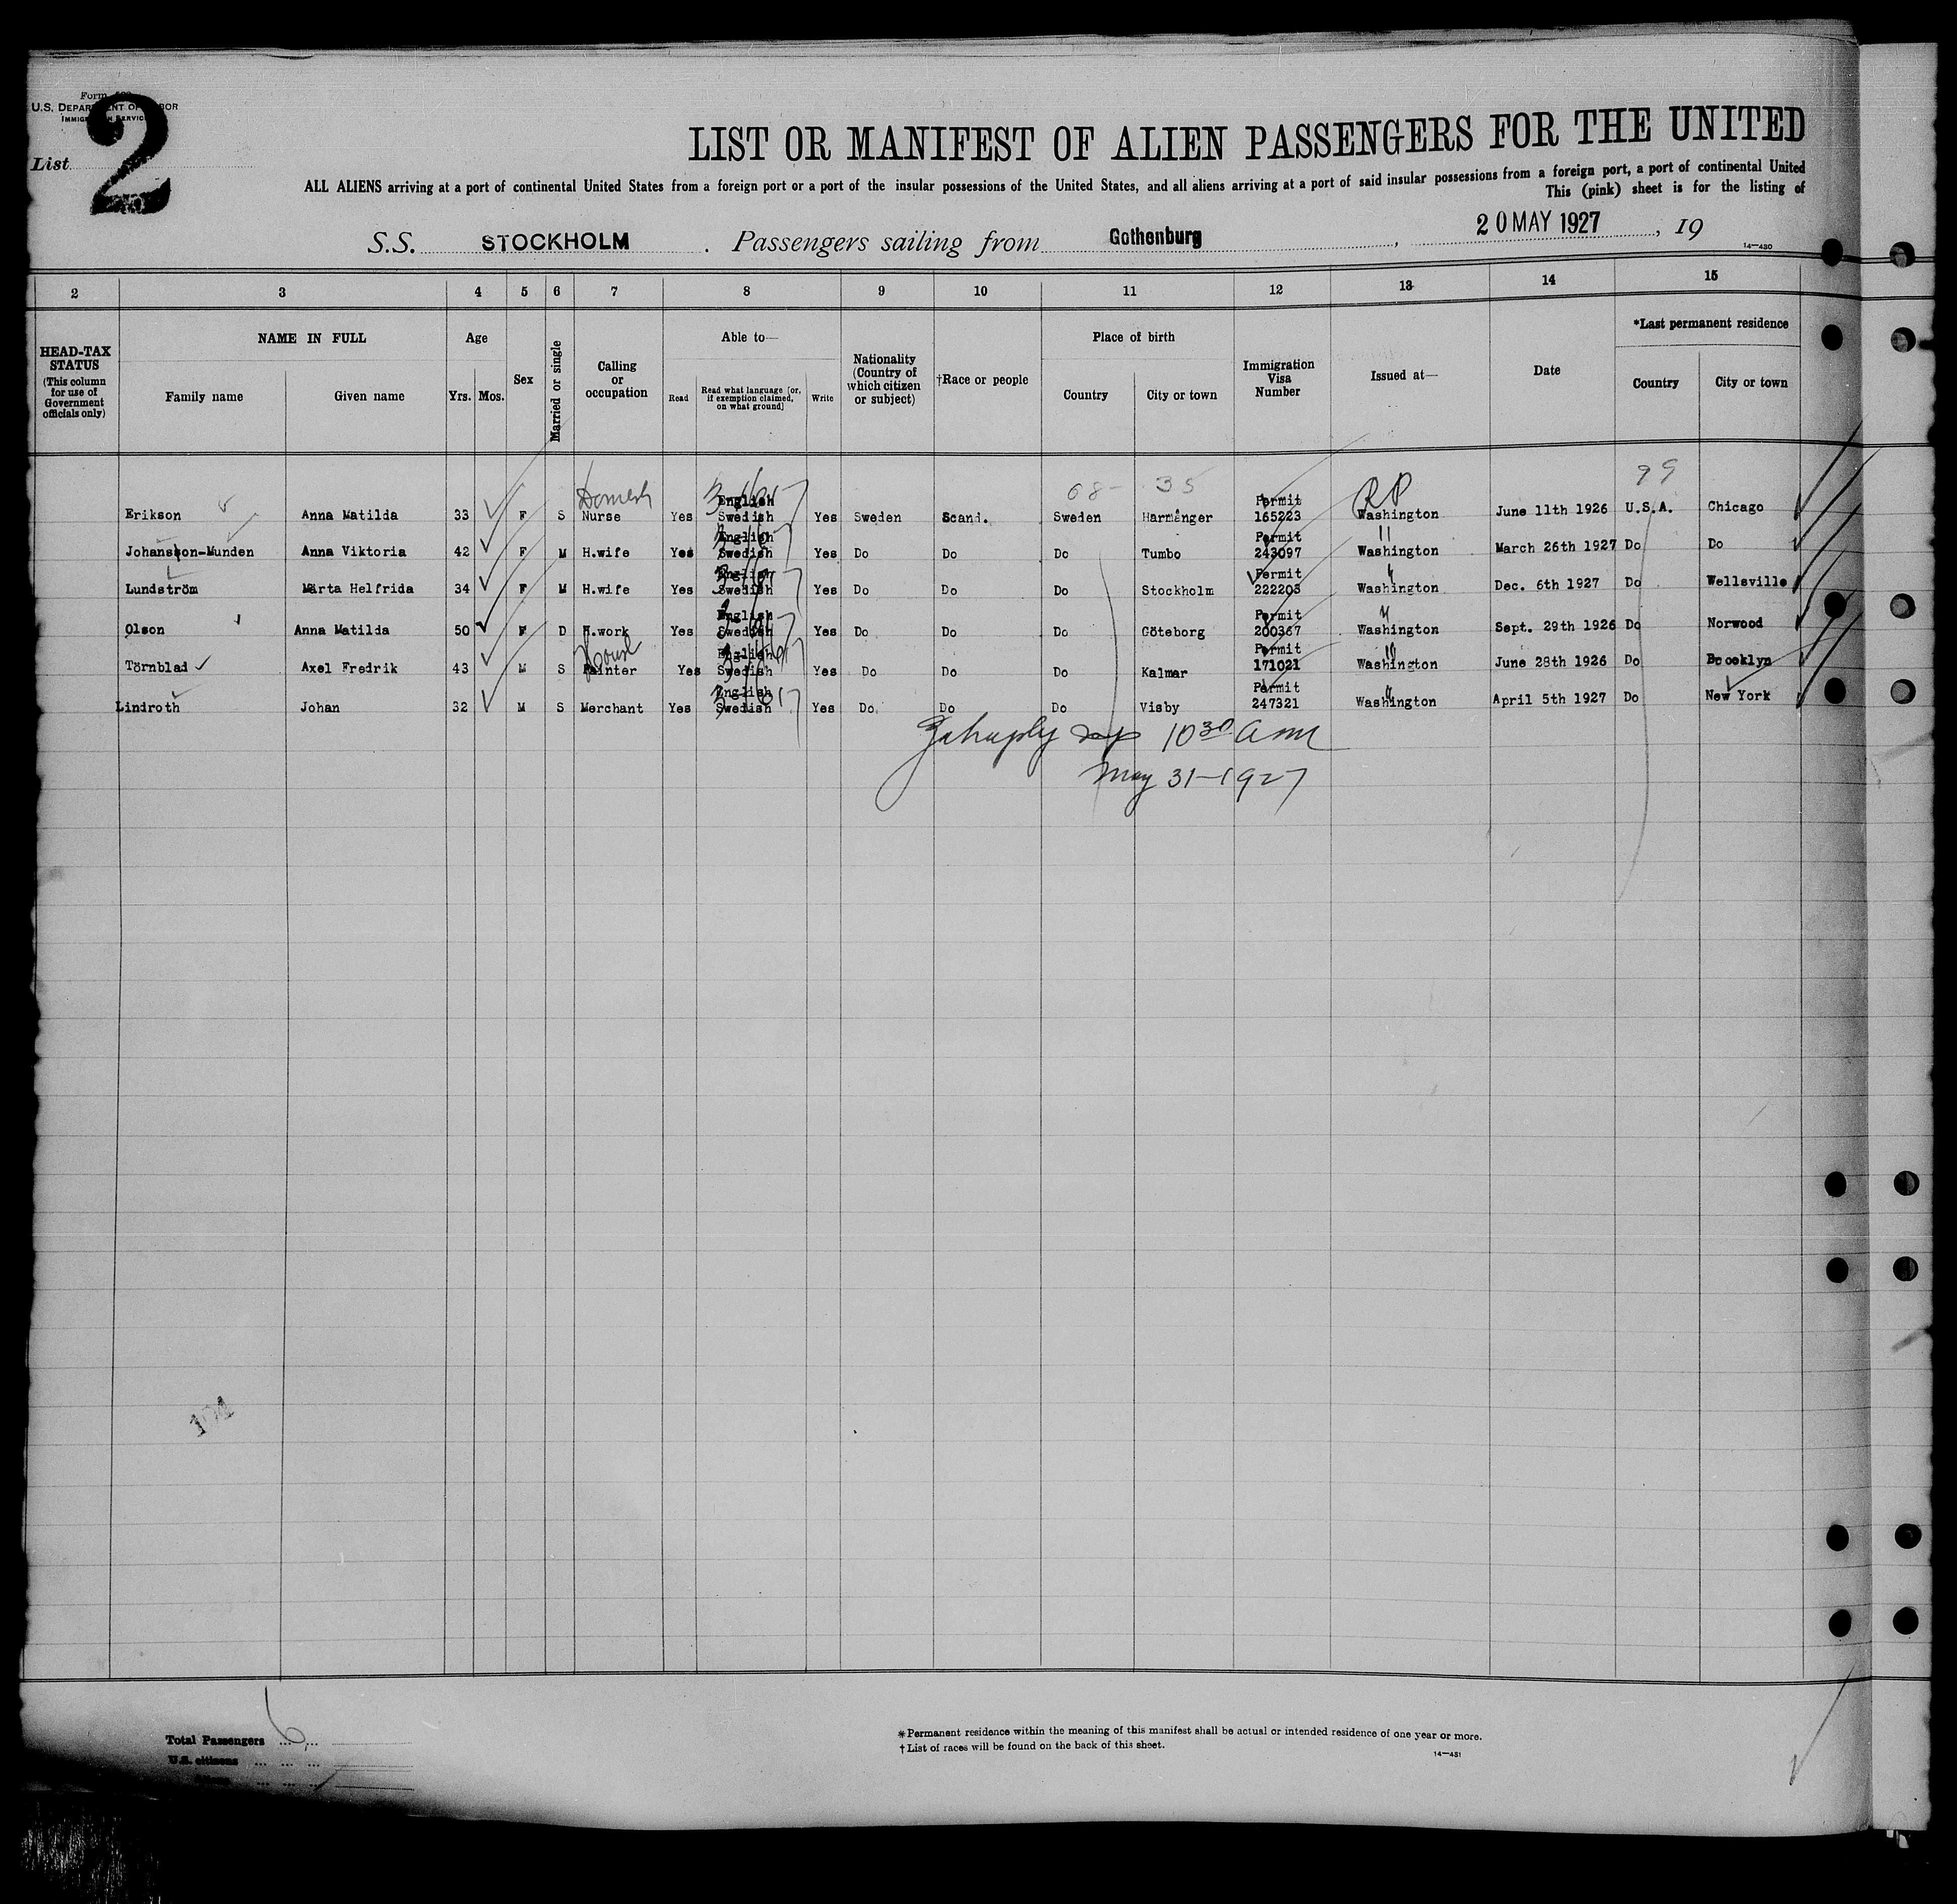 Form
U.S. DEPARTMENT OF LABOR
IMMIGRATION SERVICE
2
List
LIST OR MANIFEST OF ALIEN PASSENGERS FOR THE UNITED
ALL ALIENS arriving at a port of continental United States from a foreign port or a port of the insular possessions of the United States, and all aliens arriving at a port of said insular possessions from a foreign port, a port of continental United
This (pink) sheet is for the listing of
S.S. STOCKHOLM . Passengers sailing from Gothenburg , 20 MAY 1927 , 19
14—430
2 3 4 5 6 7 8 9 10 11 12 13 14 15
HEAD-TAX STATUS (This column for use of Government officials only)
NAME IN FULL
Family name Given name
Age
Yrs. Mos.
Sex
Married or single
Calling or occupation
Able to—
Read Read what language [or, if exemption claimed, on what ground] Write
Nationality (Country of which citizen or subject)
†Race or people
Place of birth
Country City or town
Immigration Visa Number
Issued at—
Date
*Last permanent residence
Country City or town
68- 35 99
Domestic English Permit RP
Erikson Anna Matilda 33 F S Nurse Yes Swedish Yes Sweden Scand. Sweden Harmånger 165223 Washington June 11th 1926 U.S.A. Chicago
English Permit "
Johansson-Munden Anna Viktoria 42 F M H.wife Yes Swedish Yes Do Do Do Tumbo 243097 Washington March 26th 1927 Do Do
English Permit "
Lundström Märta Helfrida 34 F M H.wife Yes Swedish Yes Do Do Do Stockholm 222203 Washington Dec. 6th 1927 Do Wellsville
English Permit "
Olson Anna Matilda 50 F D H.work Yes Swedish Yes Do Do Do Göteborg 200367 Washington Sept. 29th 1926 Do Norwood
House English Permit "
Törnblad Axel Fredrik 43 M S Painter Yes Swedish Yes Do Do Do Kalmar 171021 Washington June 28th 1926 Do Brooklyn
English Permit "
Lindroth Johan 32 M S Merchant Yes Swedish Yes Do Do Do Visby 247321 Washington April 5th 1927 Do New York
10 30 am
May 31-1927
6
Total Passengers
U.S. citizens
*Permanent residence within the meaning of this manifest shall be actual or intended residence of one year or more.
†List of races will be found on the back of this sheet.
14—431